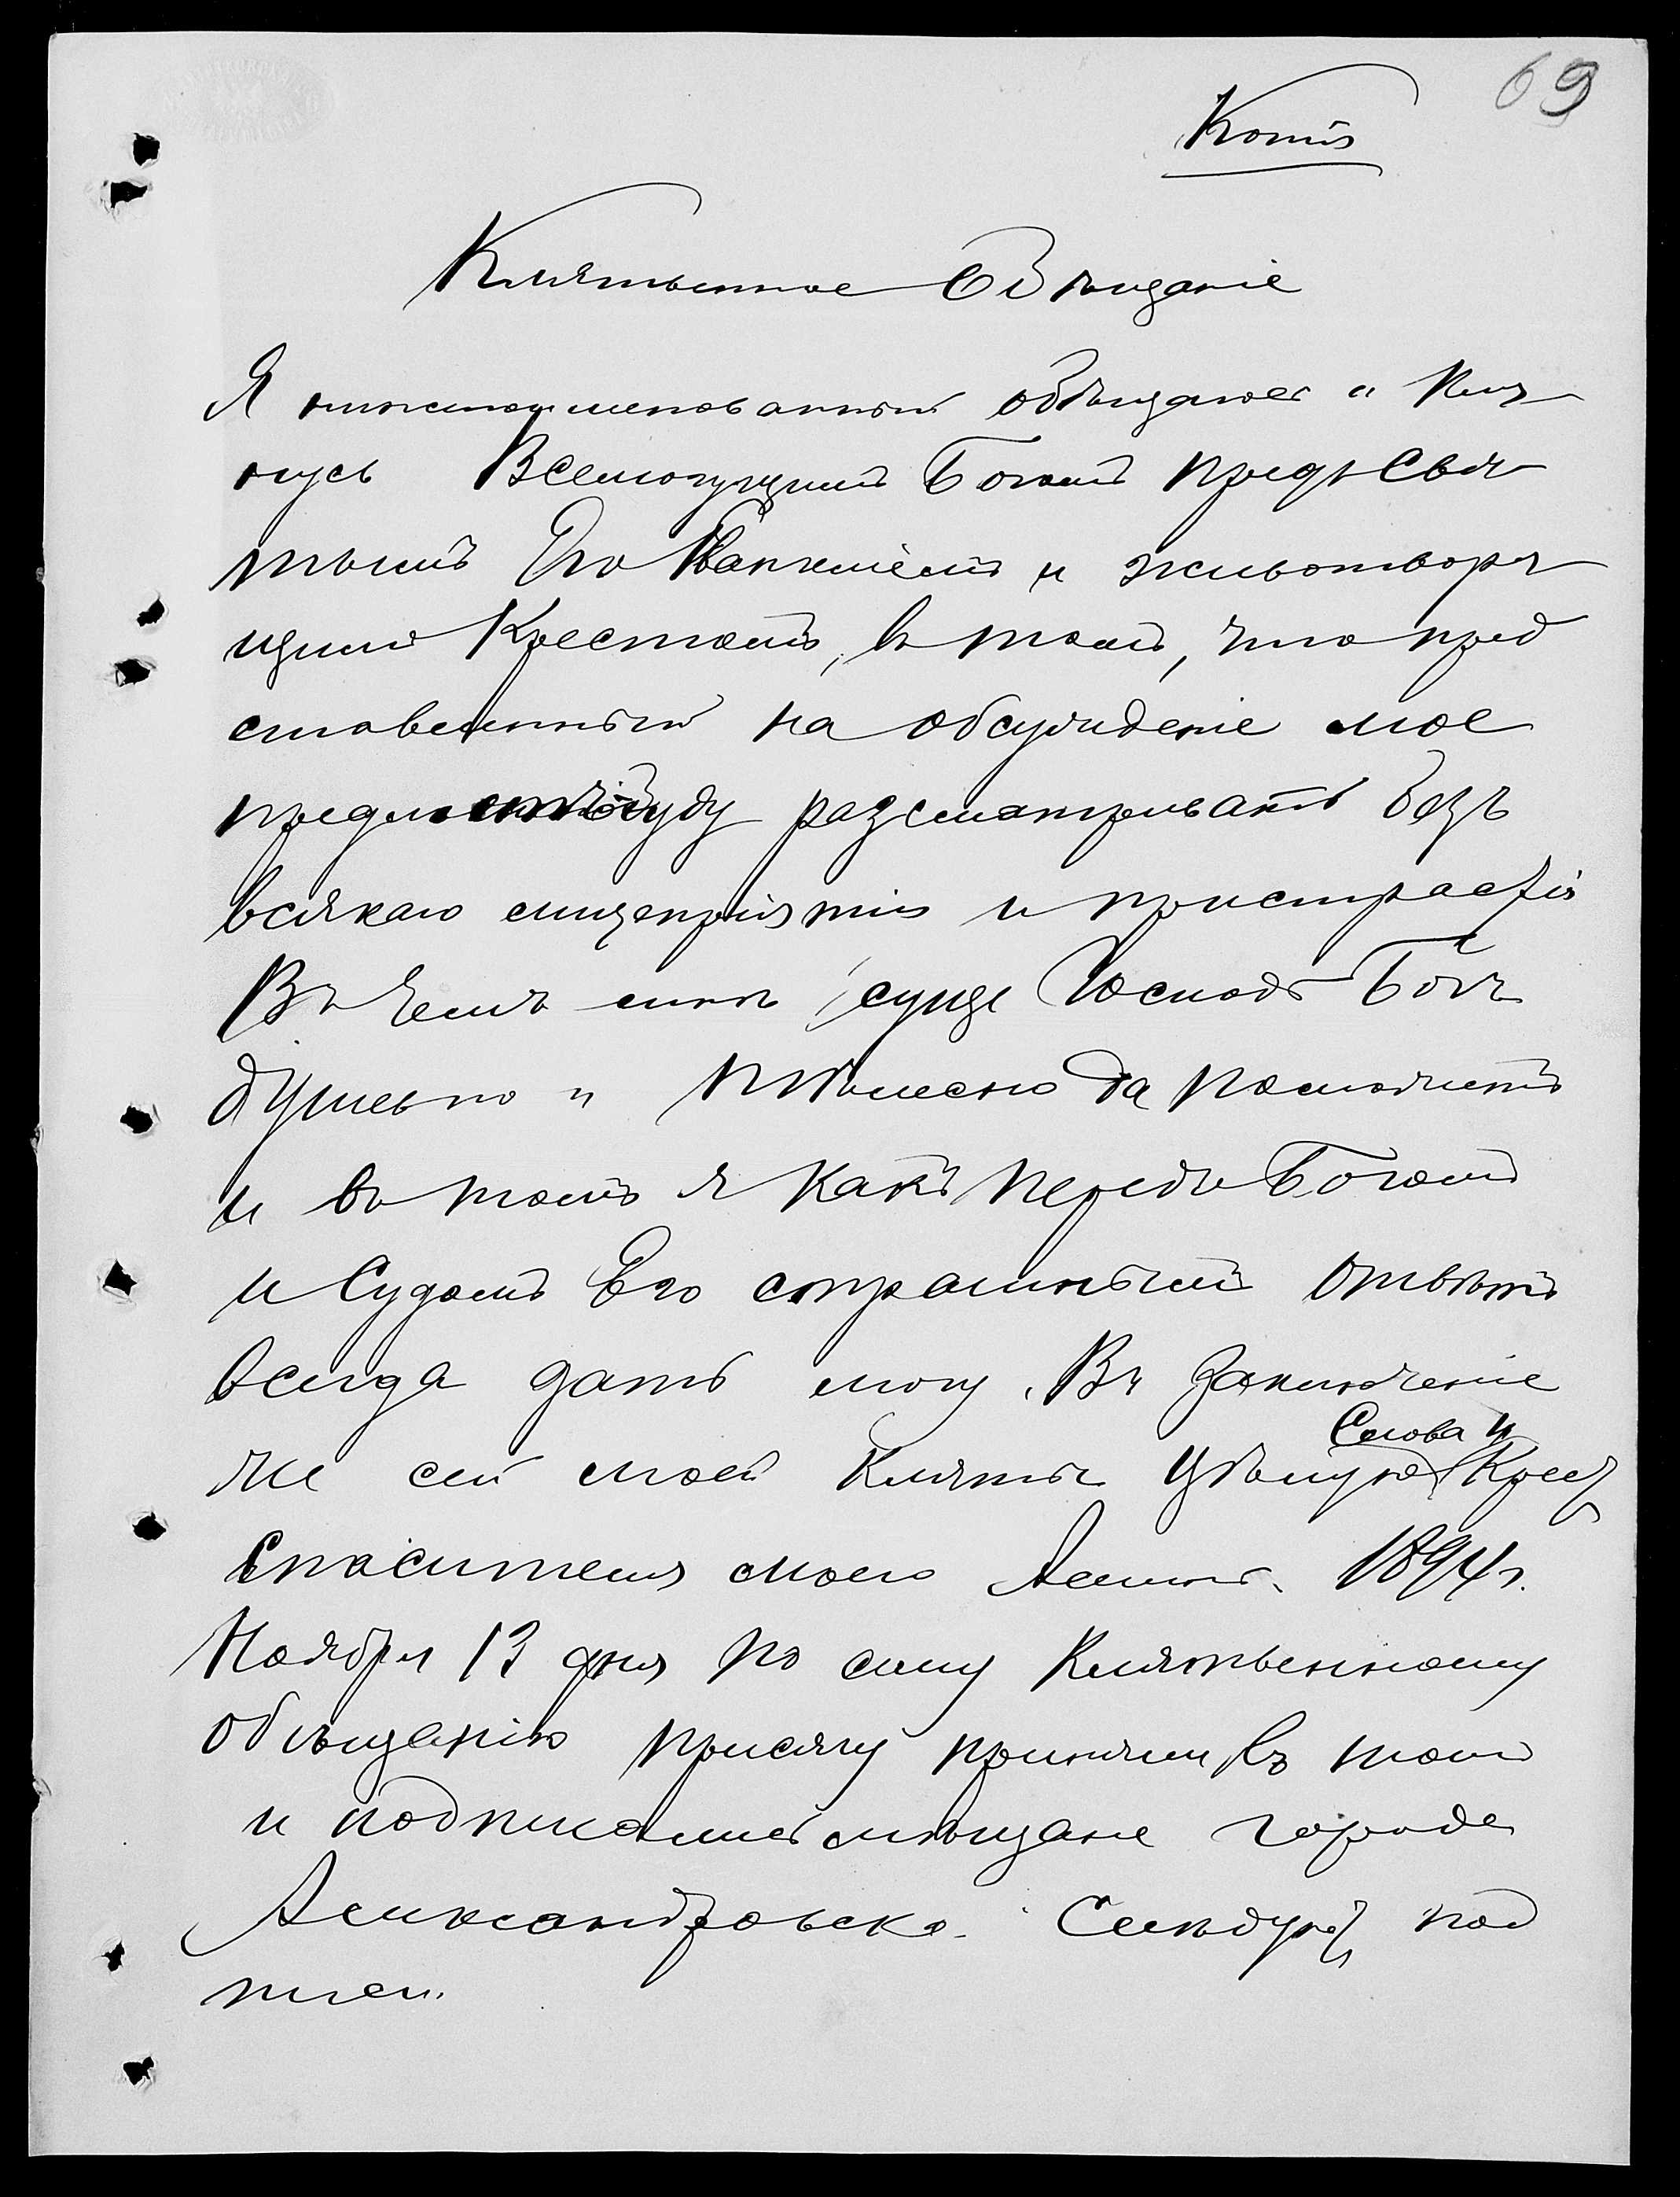 69
Копія
Клятвенное Обѣщаніе
Я нижепоименованный обѣщаюсь и Кля-
нусь Всемогущимъ Богомъ предъ Свя-
тымъ Его Евангеліемъ и животворя-
щимъ Крестомъ, въ томъ, что пред
ставленный на обсужденіе мое
предметъ буду разсматривать безъ
всякаго лицепріятія и пристрастія
Въ чемъ мнѣ сущу Господь Богъ
душевно и тѣлесно да поможетъ
и въ томъ я какъ передъ Богомъ
и Судомъ Его страшнымъ отвѣтъ
всегда дать могу. Въ Заключеніе
же сей моей Клятвы цѣлую Слова и Крестъ
Спасителя моего Аминь. 1894 г.
Ноября 13 дня по сему Клятвенному
обѣщанію присягу приняли въ томъ
и подписались мѣщане города
Александровска. Слѣдуютъ под
писи.